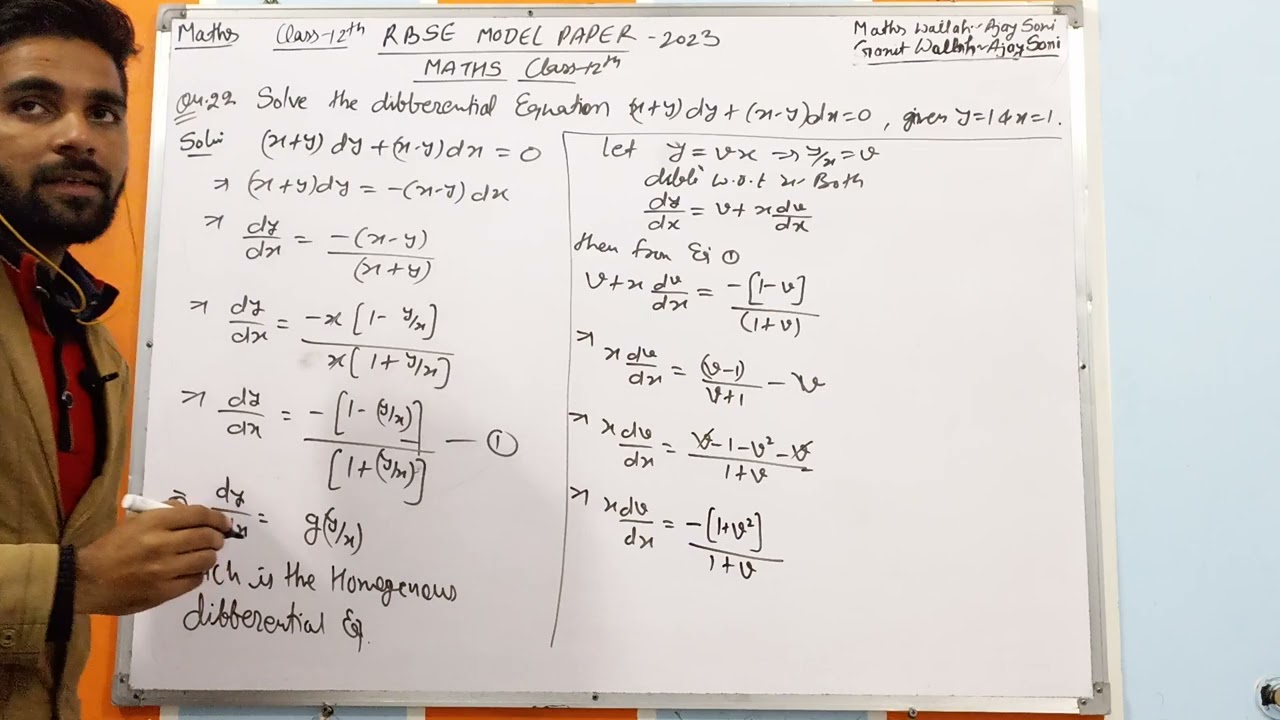 Maths Class-12th RBSE MODEL PAPER - 2023
MATHS Class-12th
Maths Wallah - Ajay Soni
Ganit Wallah - Ajay Soni
Qu.22 Solve the differential Equation (x+y)dy+(x-y)dx=0, given y=1 & x=1.
Soln (x+y) dy+(x-y)dx = 0
⇒ (x+y)dy = -(x-y) dx
⇒ dy/dx = -(x-y)/(x+y)
⇒ dy/dx = -x[1- y/x]/x[1+ y/x]
⇒ dy/dx = -[1-(y/x)]/[1+(y/x)] — ①
⇒ dy/dx = g(y/x)
is the Homogenous
differential Eq.
let y = vx ⇒ y/x = v
w.r.t x Both
dy/dx = v + x dv/dx
then from Eq ①
v+x dv/dx = -[1-v]/(1+v)
⇒ x dv/dx = (v-1)/v+1 - v
⇒ x dv/dx = v-1-v²-v/1+v
⇒ x dv/dx = -[1+v²]/1+v